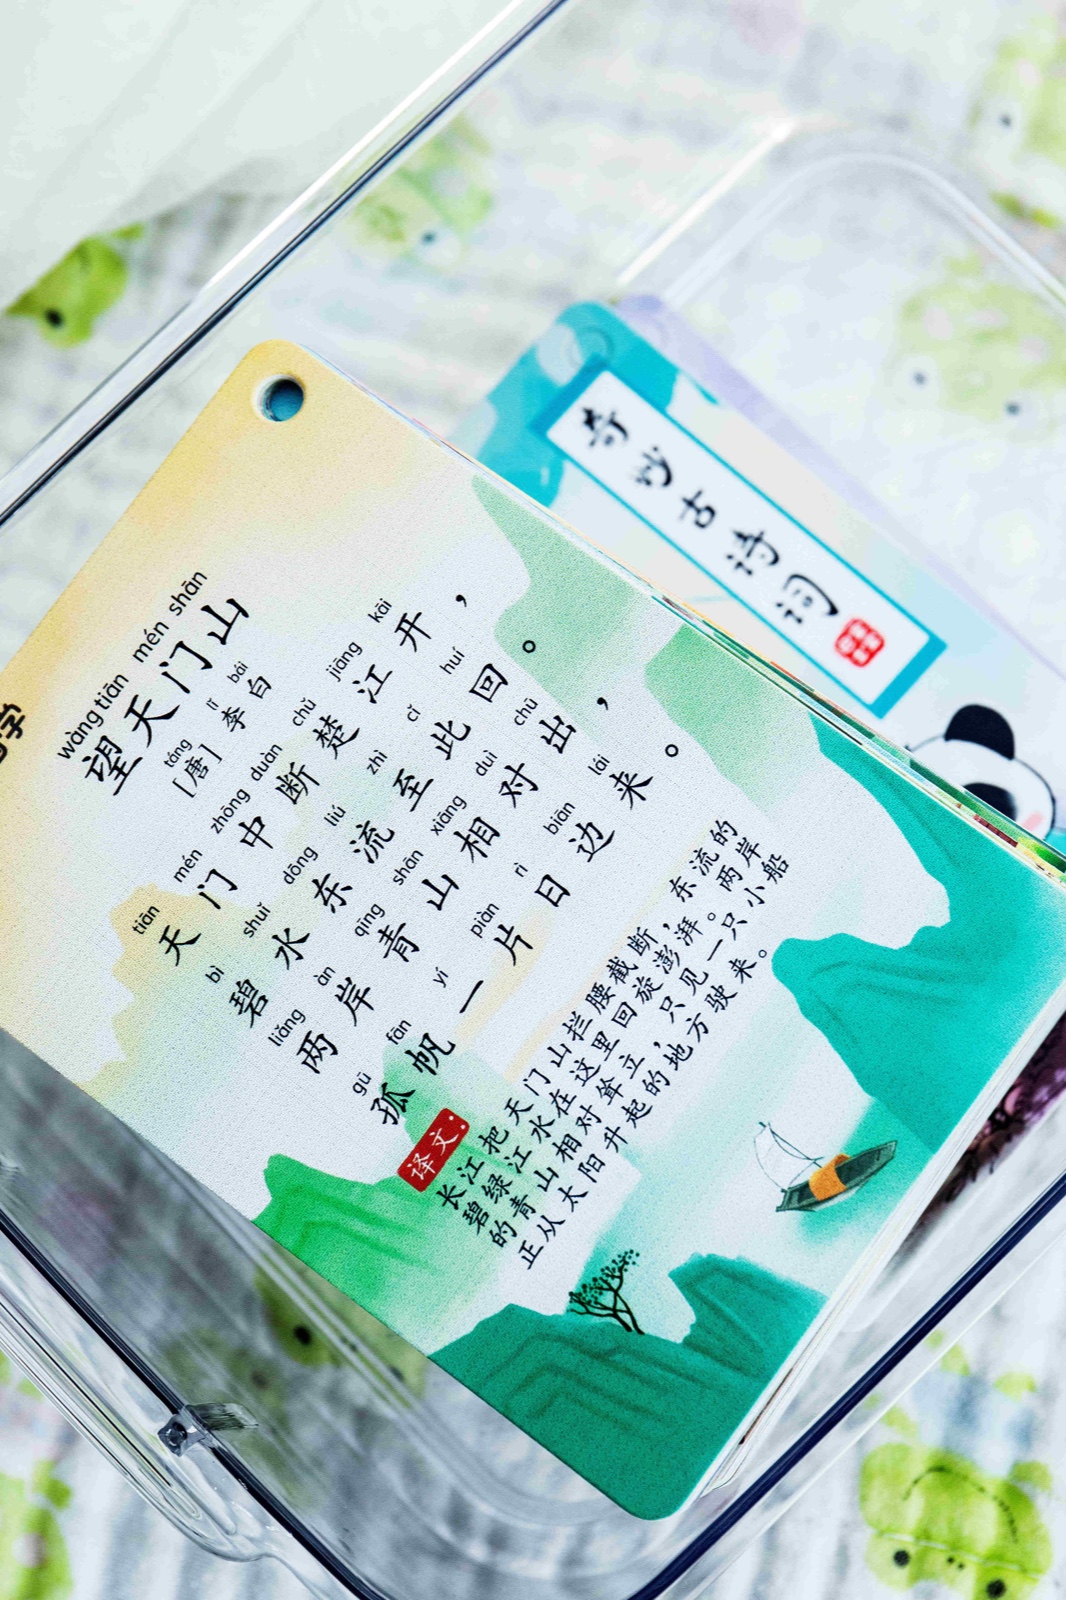 wàng tiān mén shān
望天门山
táng lǐ bái
[唐]李白
tiān mén zhōng duàn chǔ jiāng kāi
天门中断楚江开，
bì shuǐ dōng liú zhì cǐ huí
碧水东流至此回。
liǎng àn qīng shān xiāng duì chū
两岸青山相对出，
gū fān yí piàn rì biān lái
孤帆一片日边来。
译文：
长江把天门山拦腰截断，东流的
碧绿江水在这里回旋澎湃。两岸
的青山相对耸立，只见一只小船
正从太阳升起的地方驶来。
奇妙古诗词
学